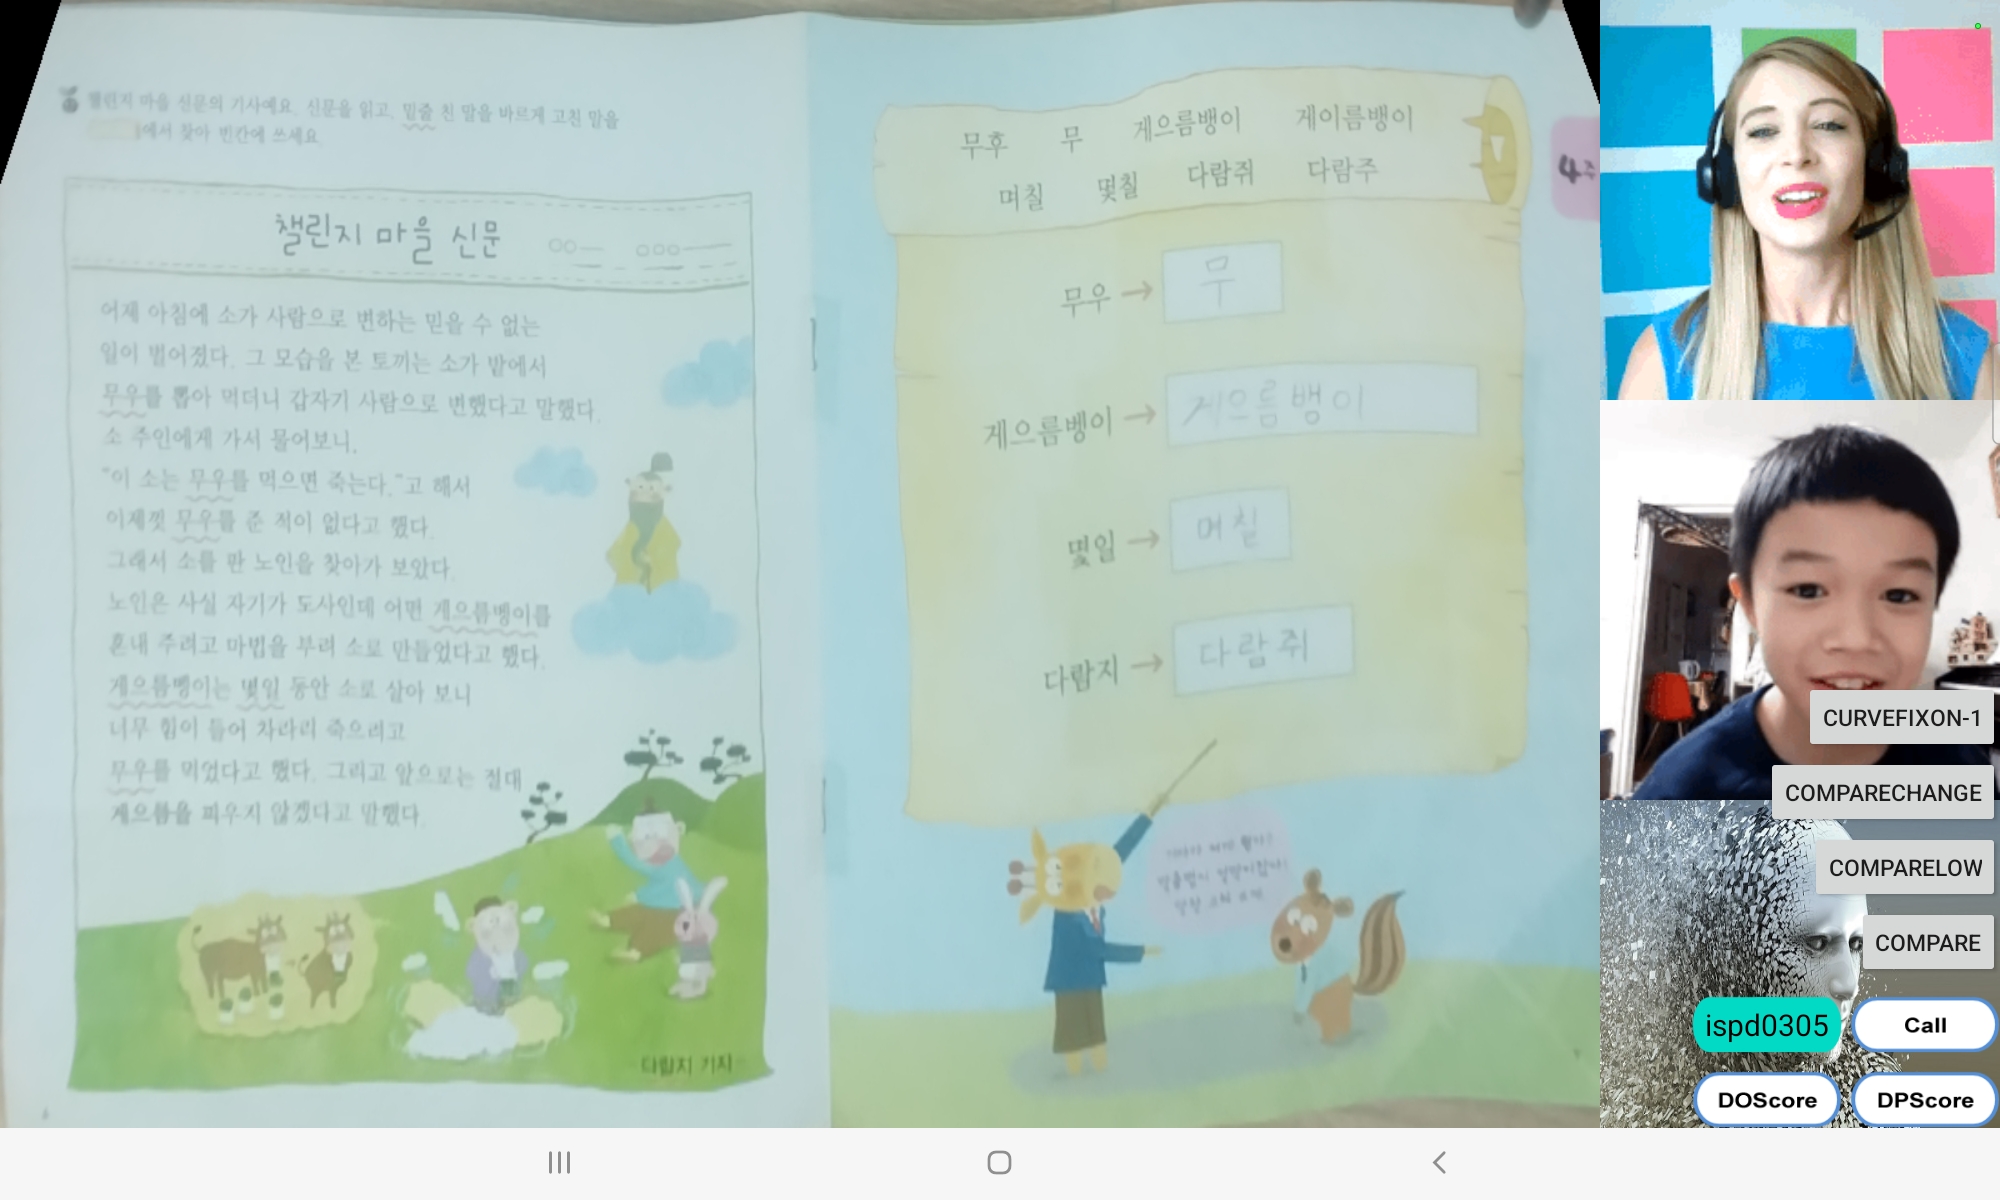 챌린지 마을 신문의 기사예요. 신문을 읽고, 밑줄 친 말을 바르게 고친 말을
에서 찾아 빈칸에 쓰세요.
챌린지 마을 신문
어제 아침에 소가 사람으로 변하는 믿을 수 없는
일이 벌어졌다. 그 모습을 본 토끼는 소가 밭에서
무우를 뽑아 먹더니 갑자기 사람으로 변했다고 말했다.
소 주인에게 가서 물어보니,
"이 소는 무우를 먹으면 죽는다."고 해서
이제껏 무우를 준 적이 없다고 했다.
그래서 소를 판 노인을 찾아가 보았다.
노인은 사실 자기가 도사인데 어떤 게으름벵이를
혼내 주려고 마법을 부려 소로 만들었다고 했다.
게으름벵이는 몇일 동안 소로 살아 보니
너무 힘이 들어 차라리 죽으려고
무우를 먹었다고 했다. 그리고 앞으로는 절대
게으름을 피우지 않겠다고 말했다.
다람지 기자
무후 무 게으름뱅이 게이름뱅이
며칠 몇칠 다람쥐 다람주
무우 → 무
게으름벵이 → 게으름뱅이
몇일 → 며칠
다람지 → 다람쥐
4주
CURVEFIXON-1
COMPARECHANGE
COMPARELOW
COMPARE
ispd0305 Call
DOScore DPScore